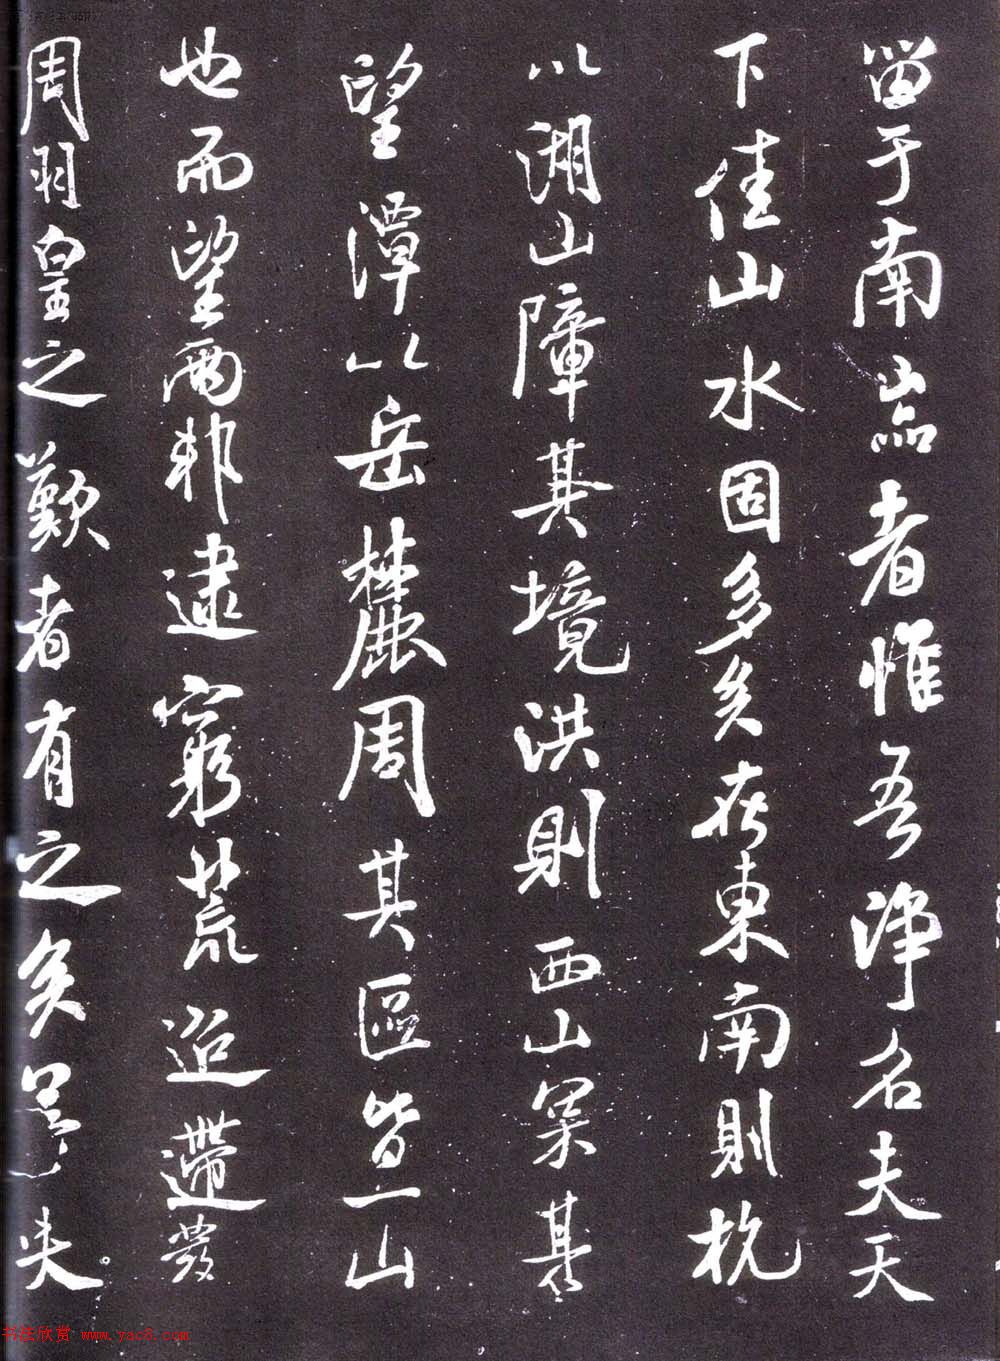 留于南㟁者惟吾淨名夫天
下佳山水固多矣在東南則杭
以湖山障其境洪則西山冪其
望潭以岳麓周其區皆一山
也而望兩邦逮窮荒迢遰發
周羽皇之歎者有之矣
书法欣赏 www.yac8.com